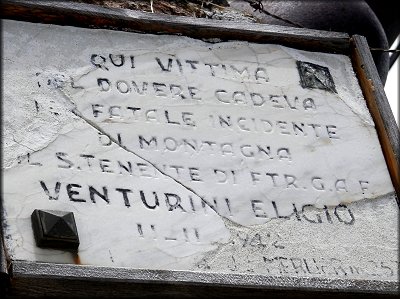 QUI VITTIMA
DEL DOVERE CADEVA
IN FATALE INCIDENTE
DI MONTAGNA
IL S.TENENTE DI FTR.G.A.F.
VENTURINI ELIGIO
11-11 1942